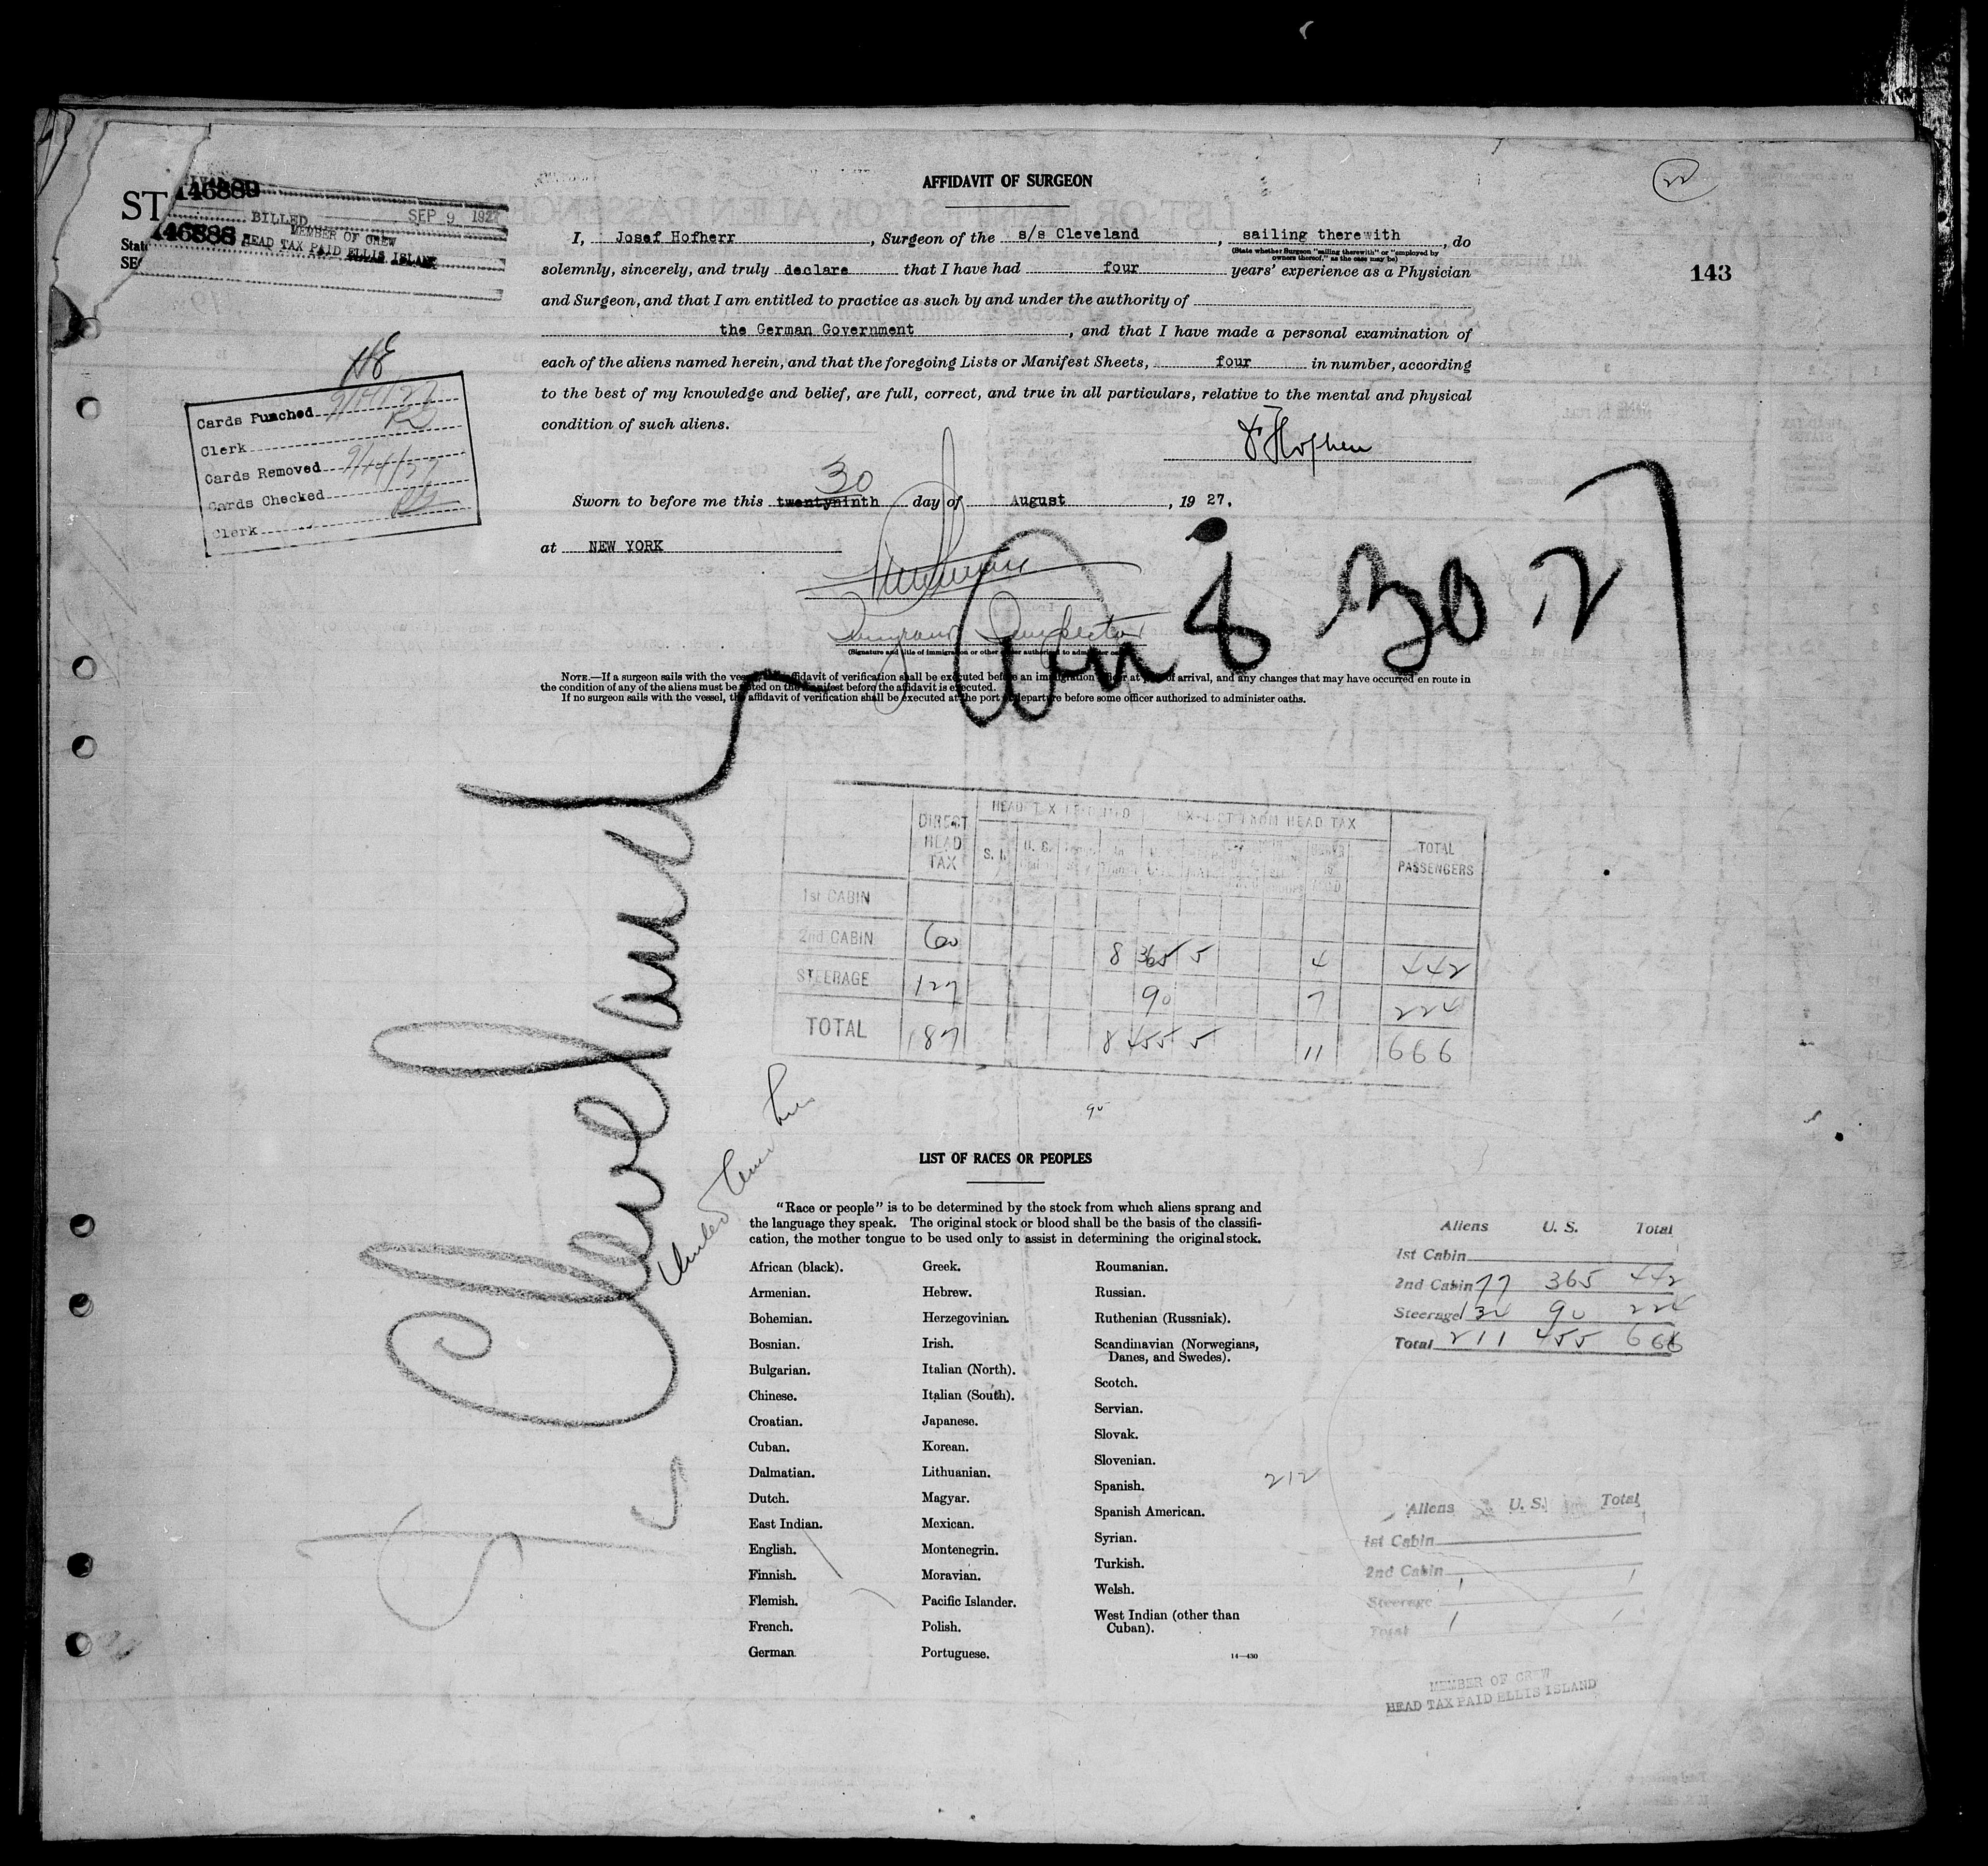 AFFIDAVIT OF SURGEON
22
143
ST
146889
BILLED SEP 9 1927
MEMBER OF CREW
146888 HEAD TAX PAID ELLIS ISLAND
State
I, Josef Hofherr, Surgeon of the s/s Cleveland, sailing therewith, do
(State whether Surgeon "sailing therewith" or "employed by
owners thereof," as the case may be)
solemnly, sincerely, and truly declare that I have had four years' experience as a Physician
and Surgeon, and that I am entitled to practice as such by and under the authority of
the German Government, and that I have made a personal examination of
each of the aliens named herein, and that the foregoing Lists or Manifest Sheets, four in number, according
to the best of my knowledge and belief, are full, correct, and true in all particulars, relative to the mental and physical
condition of such aliens.
Cards Punched 9/14/27
Clerk
Cards Removed 9/14/27
Cards Checked
Clerk
30
Sworn to before me this twentyninth day of August, 19 27.
at NEW YORK
Immigrant Inspector
(Signature and title of immigration or other officer authorized to administer oaths)
NOTE.—If a surgeon sails with the vessel, the affidavit of verification shall be executed before an immigration officer at port of arrival, and any changes that may have occurred en route in
the condition of any of the aliens must be noted on the manifest before the affidavit is executed.
If no surgeon sails with the vessel, the affidavit of verification shall be executed at the port of departure before some officer authorized to administer oaths.
Cleveland
30 27
DIRECT HEAD TAX
EXEMPT FROM HEAD TAX
S. I.
TOTAL PASSENGERS
1st CABIN
2nd CABIN 60 8 365 5 4 442
STEERAGE 127 90 7 224
TOTAL 187 8 455 5 11 666
90
LIST OF RACES OR PEOPLES
"Race or people" is to be determined by the stock from which aliens sprang and
the language they speak. The original stock or blood shall be the basis of the classifi-
cation, the mother tongue to be used only to assist in determining the original stock.
African (black).
Armenian.
Bohemian.
Bosnian.
Bulgarian.
Chinese.
Croatian.
Cuban.
Dalmatian.
Dutch.
East Indian.
English.
Finnish.
Flemish.
French.
German
Greek.
Hebrew.
Herzegovinian.
Irish.
Italian (North).
Italian (South).
Japanese.
Korean.
Lithuanian.
Magyar.
Mexican.
Montenegrin.
Moravian.
Pacific Islander.
Polish.
Portuguese.
Roumanian.
Russian.
Ruthenian (Russniak).
Scandinavian (Norwegians,
Danes, and Swedes).
Scotch.
Servian.
Slovak.
Slovenian.
Spanish.
Spanish American.
Syrian.
Turkish.
Welsh.
West Indian (other than
Cuban).
14—430
Aliens U. S. Total
1st Cabin
2nd Cabin 77 365 442
Steerage 134 90 224
Total 211 455 666
212
Aliens U. S. Total
1st Cabin
2nd Cabin 1 1
Steerage
Total 1 1
MEMBER OF CREW
HEAD TAX PAID ELLIS ISLAND